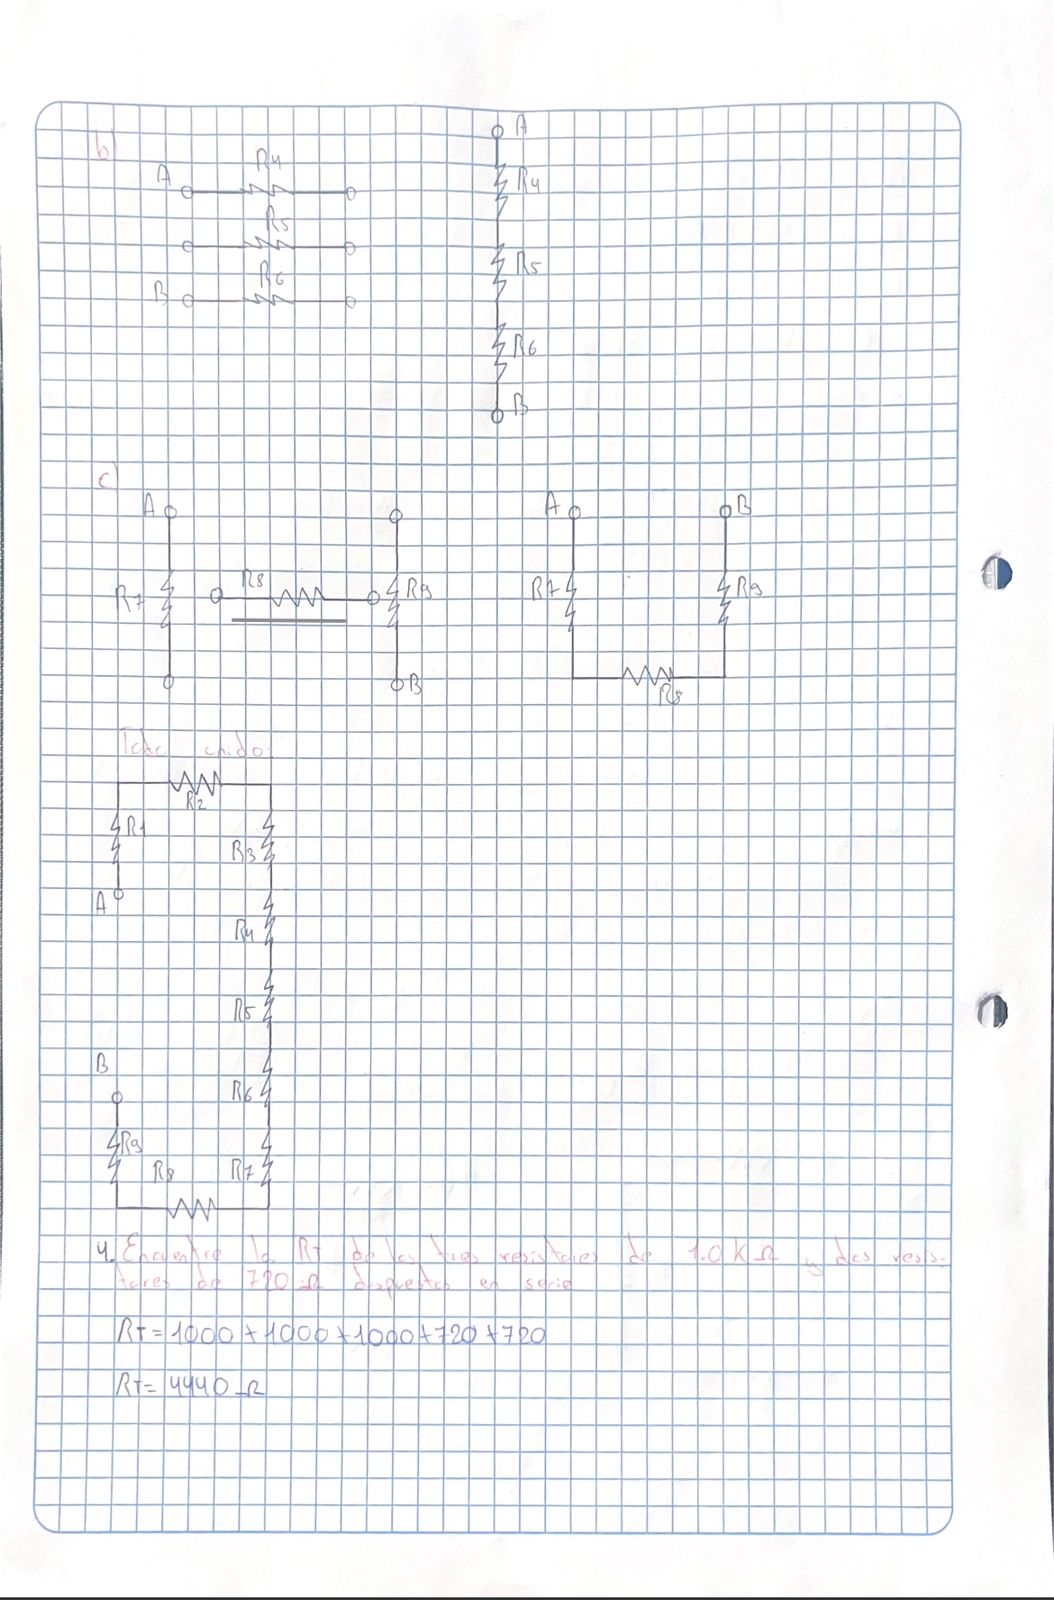 b)
A R4
R5
B R6
A
R4
R5
R6
B
c)
A
R7
R8
R9
B
A B
R7 R9
R8
Todo unido:
R2
R1
R3
A
R4
R5
B
R6
R9
R8 R7
4. Encuentre la RT de los tres resistores de 1.0 K Ω y dos resis-
tores de 720 Ω dispuestos en serie
RT=1000+1000+1000+720+720
RT= 4440 Ω